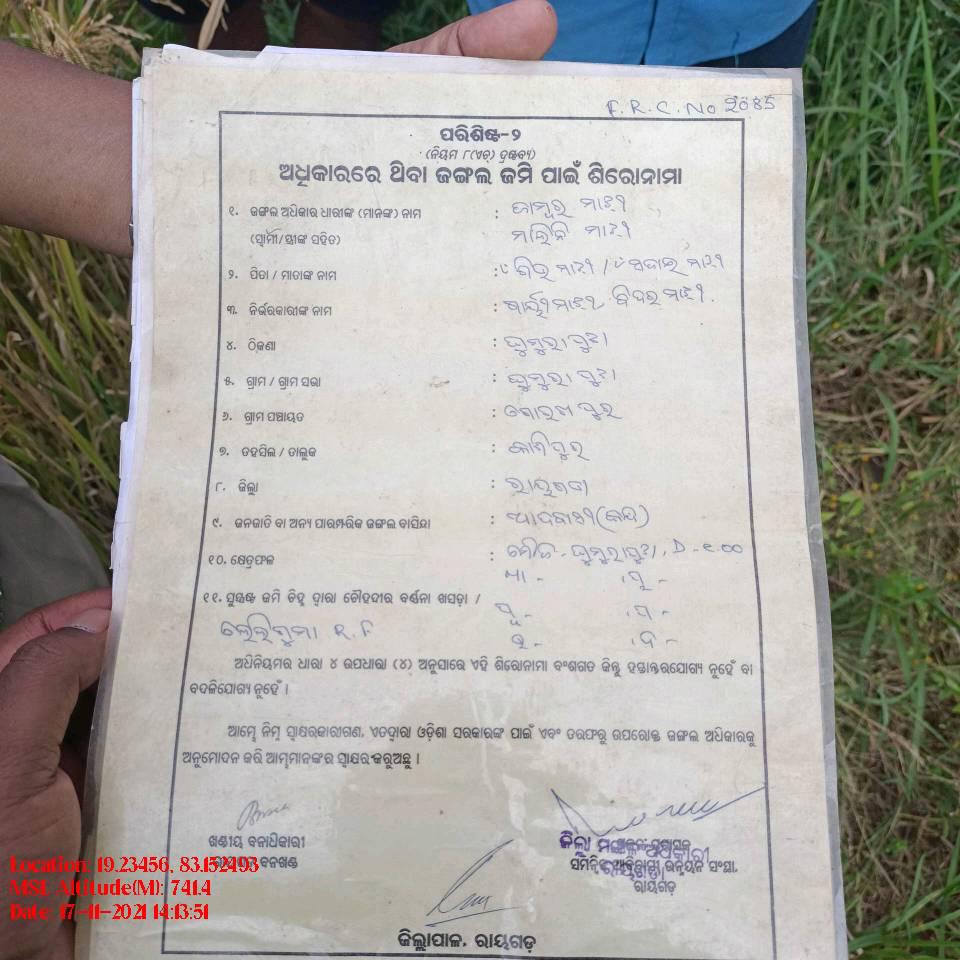 F.R.C. No 2085
ପରିଶିଷ୍ଟ-୨
(ନିୟମ ୮(ଏଚ୍) ଦ୍ରଷ୍ଟବ୍ୟ)
ଅଧିକାରରେ ଥିବା ଜଙ୍ଗଲ ଜମି ପାଇଁ ଶିରୋନାମା
୧. ଜଙ୍ଗଲ ଅଧିକାର ଧାରୀଙ୍କ (ମାନଙ୍କ) ନାମ : ଡାମ୍ବର ମାଝୀ
(ସ୍ୱାମୀ/ସ୍ତ୍ରୀଙ୍କ ସହିତ) ମାଝୀ
୨. ପିତା / ମାତାଙ୍କ ନାମ : ମାଝୀ / ମାଝୀ
୩. ନିର୍ଭରକାରୀଙ୍କ ନାମ : ମାଝୀ, ମାଝୀ
୪. ଠିକଣା : ଘୁମୁରା ଗୁଡ଼ା
୫. ଗ୍ରାମ / ଗ୍ରାମ ସଭା : ଘୁମୁରା ଗୁଡ଼ା
୬. ଗ୍ରାମ ପଞ୍ଚାୟତ : ଗୋରଖପୁର
୭. ତହସିଲ / ତାଲୁକ : କାଶିପୁର
୮. ଜିଲ୍ଲା : ରାୟଗଡା
୯. ଜନଜାତି ବା ଅନ୍ୟ ପାରମ୍ପରିକ ଜଙ୍ଗଲ ବାସିନ୍ଦା : ଆଦିବାସୀ (କନ୍ଧ)
୧୦. କ୍ଷେତ୍ରଫଳ : ମୌଜା - ଘୁମୁରାଗୁଡ଼ା, D -
୧୧. ସୁସ୍ପଷ୍ଟ ଜମି ଚିହ୍ନ ଦ୍ୱାରା ଚୌହଦ୍ଦୀର ବର୍ଣ୍ଣନା ଖସଡ଼ା /
R.F
ଅଧିନିୟମର ଧାରା ୪ ଉପଧାରା (୪) ଅନୁସାରେ ଏହି ଶିରୋନାମା ବଂଶଗତ କିନ୍ତୁ ହସ୍ତାନ୍ତରଯୋଗ୍ୟ ନୁହେଁ ବା
ବଦଳିଯୋଗ୍ୟ ନୁହେଁ ।
ଆମ୍ଭେ ନିମ୍ନ ସ୍ୱାକ୍ଷରକାରୀଗଣ, ଏତଦ୍ୱାରା ଓଡ଼ିଶା ସରକାରଙ୍କ ପାଇଁ ଏବଂ ତରଫରୁ ଉପରୋକ୍ତ ଜଙ୍ଗଲ ଅଧିକାରକୁ
ଅନୁମୋଦନ କରି ଆମ୍ଭମାନଙ୍କର ସ୍ୱାକ୍ଷର କରୁଅଛୁ ।
ଖଣ୍ଡୀୟ ବନାଧିକାରୀ
ବନଖଣ୍ଡ
ଜିଲ୍ଲା ମଙ୍ଗଳ ଅଧିକାରୀ
ରାୟଗଡ଼ା
ସମନ୍ୱିତ ଆଦିବାସୀ ଉନ୍ନୟନ ସଂସ୍ଥା,
ରାୟଗଡ଼
ଜିଲ୍ଲାପାଳ, ରାୟଗଡ଼
Location: 19.23456, 83.152493
MSL Altitude(M): 741.4
Date: 17-11-2021 14:13:51